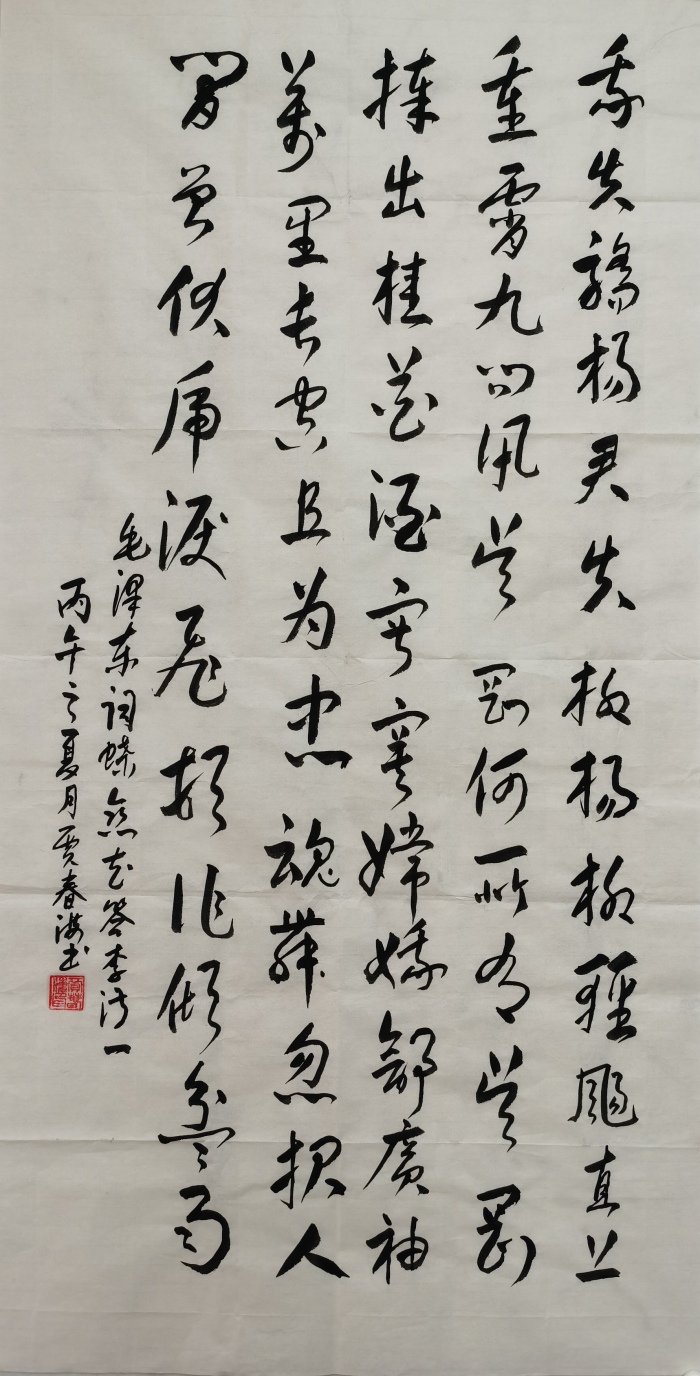 我失驕楊君失柳楊柳輕颺直上
重霄九问讯吴剛何所有吴剛
捧出桂花酒寂寞嫦娥舒廣袖
萬里长空且为忠魂舞忽报人
間曾伏虎淚飛頓作傾盆雨
毛澤东词蝶恋花答李淑一
丙午之夏月贾春海书